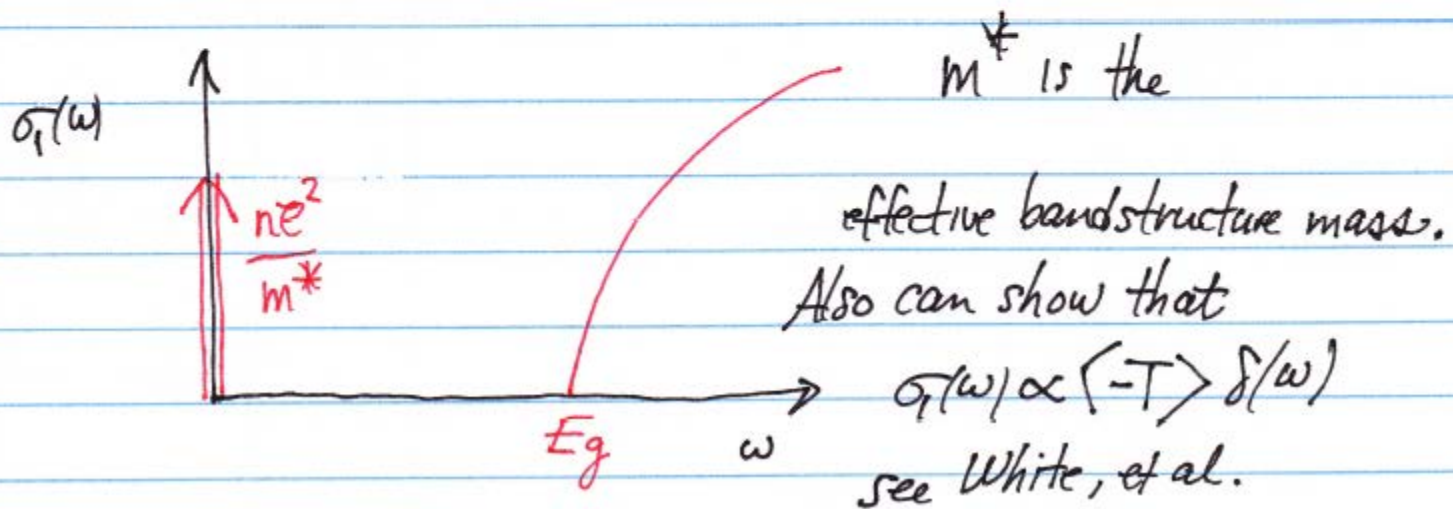 σ₁(ω)
ne²
m*
Eg
ω
m* is the
effective bandstructure mass.
Also can show that
σ₁(ω) ∝ ⟨-T⟩ δ(ω)
see White, et al.